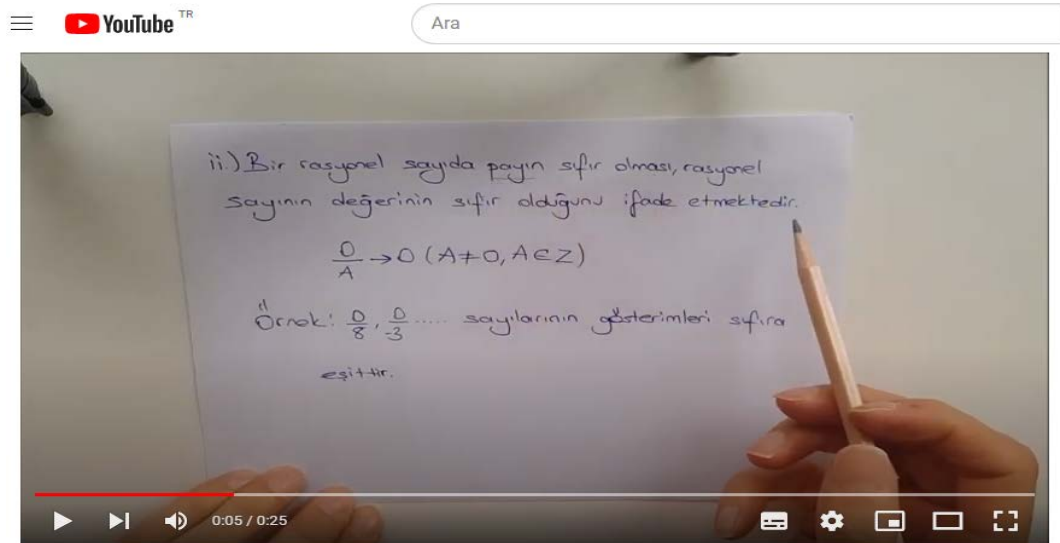 YouTube TR
Ara
ii.) Bir rasyonel sayıda payın sıfır olması, rasyonel
sayının değerinin sıfır olduğunu ifade etmektedir.
0/A → 0 (A≠0, A∈Z)
Örnek: 0/8, 0/-3 ..... sayılarının gösterimleri sıfıra
eşittir.
0:05 / 0:25